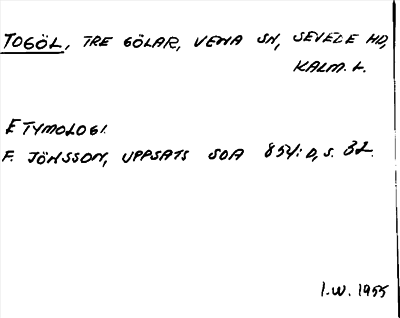 TOGÖL, TRE GÖLAR, VENA SN, SEVEDE HD,
KALM. L.
ETYMOLOGI.
F. JÖNSSON, UPPSATS SOA 854: D, S. 32.
I.W. 1955